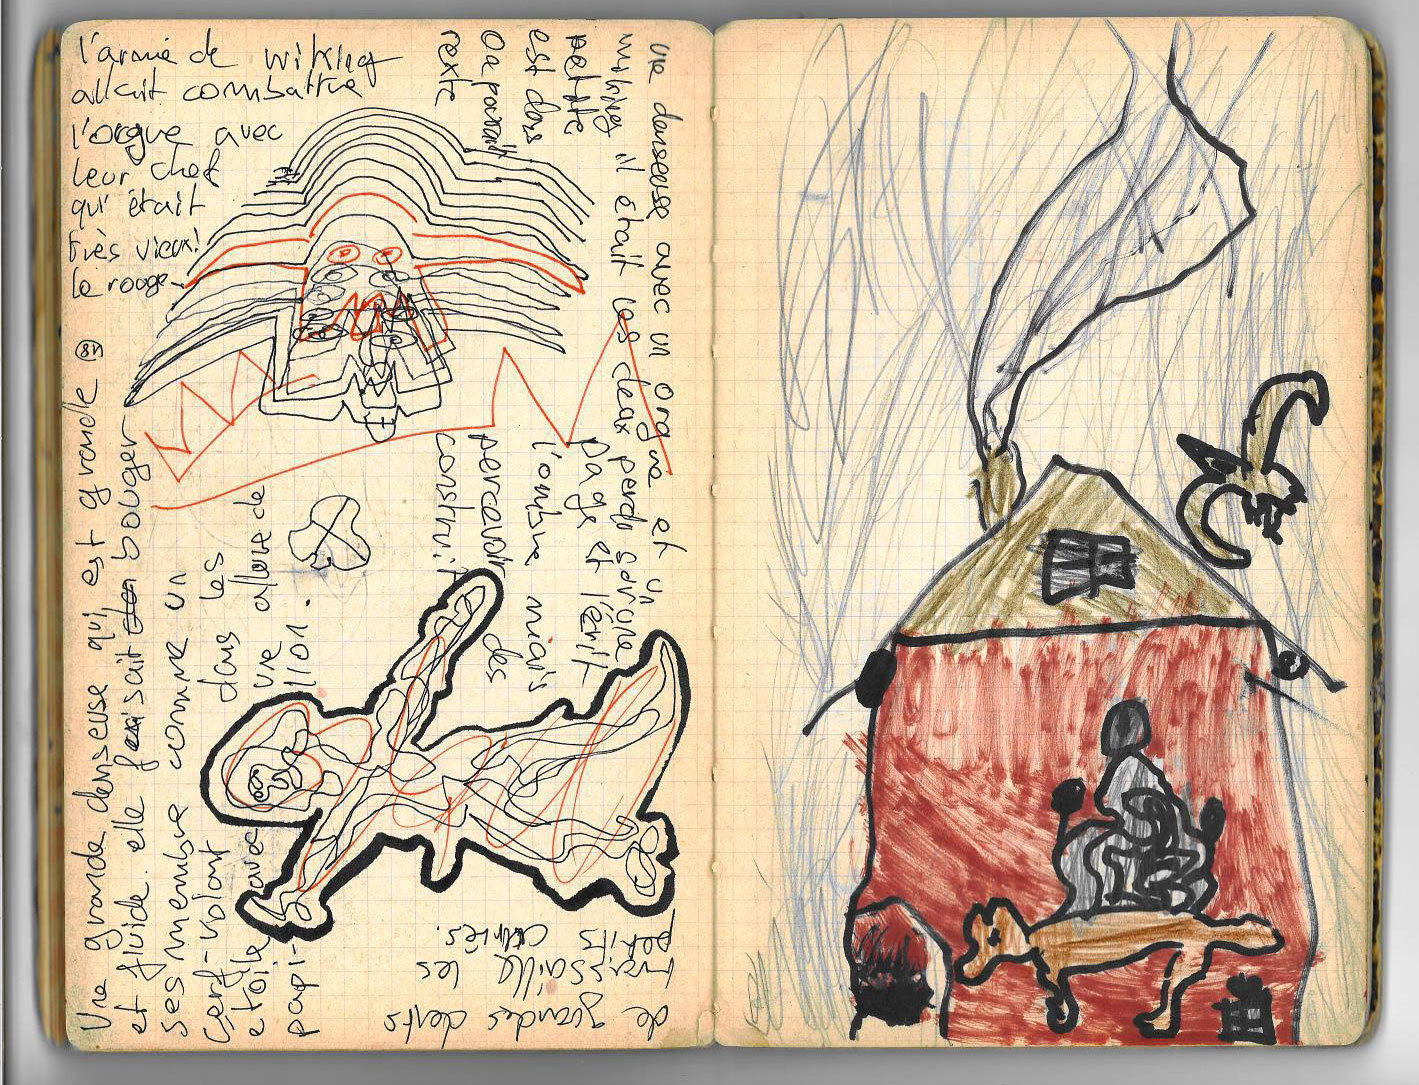 l'armée de wiking
allait combattre
l'orgue avec
leur chef
qui était
très vieux!
le rouge
une danseuse avec un orgue et un
wiking il était les deux perdu sur une
petite page et l'écrit
est dos l'ombre mais
on pouvait percevoir des
texte construit
de grandes dents
tressaille les
petits carrés.
Une grande danseuse qui est grande en
et fluide. elle faisait bouger
ses membre comme un
cerf-volant dans les
etoile avec une allure de
papi- llon.